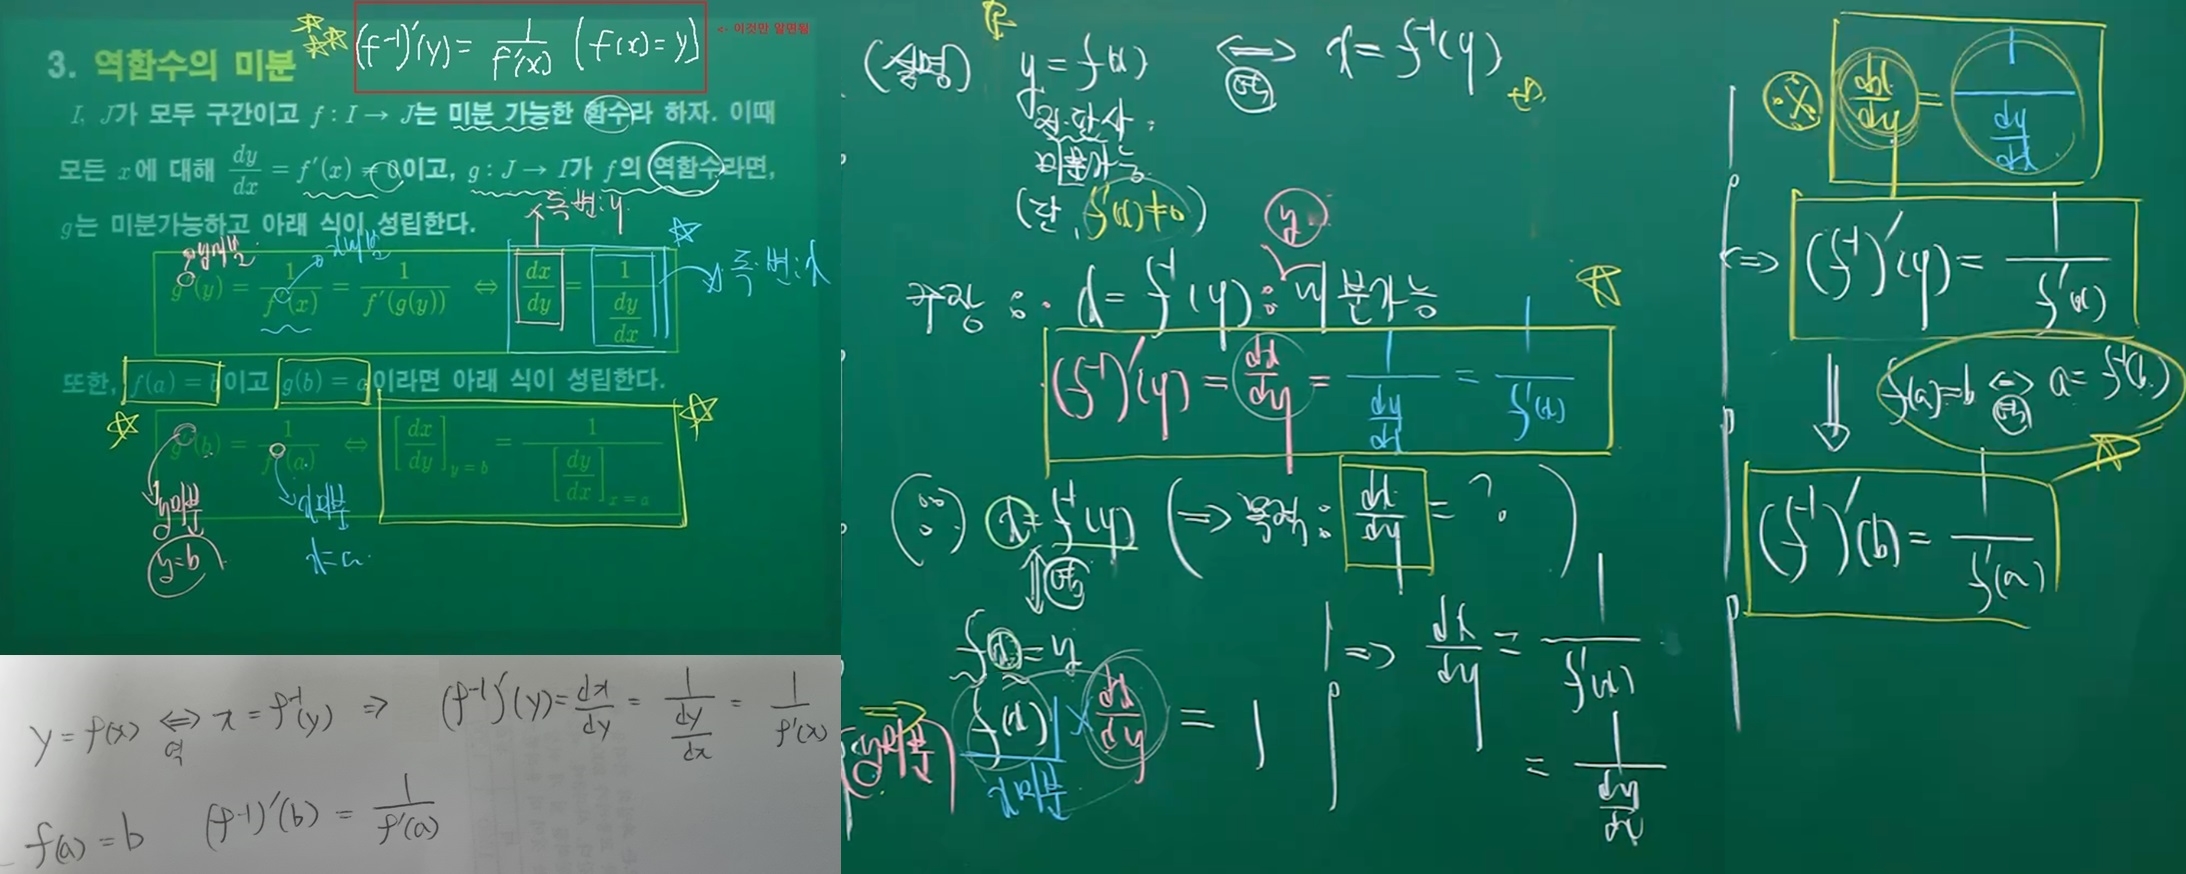 (f⁻¹)′(y) = 1/f′(x) (f(x) = y) <- 이것만 알면됨
3. 역함수의 미분
I, J가 모두 구간이고 f : I → J는 미분 가능한 함수라 하자. 이때
모든 x에 대해 dy/dx = f′(x) ≠ 0이고, g : J → I가 f의 역함수라면,
g는 미분가능하고 아래 식이 성립한다.
독·변:y
y미분
x미분
g′(y) = 1/f′(x) = 1/f′(g(y)) ⇔ dx/dy = 1/(dy/dx)
독·변:x
또한, f(a) = b이고 g(b) = a이라면 아래 식이 성립한다.
g′(b) = 1/f′(a) ⇔ [dx/dy]y=b = 1/[dy/dx]x=a
y미분 x미분
y=b x=a
y = f(x) ⇔ x = f⁻¹(y) ⇒ (f⁻¹)′(y) = dx/dy = 1/(dy/dx) = 1/f′(x)
역
f(a) = b (f⁻¹)′(b) = 1/f′(a)
(설명) y = f(x) ⇔ x = f⁻¹(y)
역
미분가능
(단, f′(x) ≠ 0)
y
주장 : x = f⁻¹(y) : 미분가능
(f⁻¹)′(y) = dx/dy = 1/(dy/dx) = 1/f′(x)
(∵) x = f⁻¹(y) (⇒ 목적 : dx/dy = ? )
역
f(x) = y
y미분 f′(x) × dx/dy = 1
x미분
⇒ dx/dy = 1/f′(x)
= 1/(dy/dx)
※ dx/dy = 1/(dy/dx)
⇔ (f⁻¹)′(y) = 1/f′(x)
⇓ f(a) = b ⇔ a = f⁻¹(b)
역
(f⁻¹)′(b) = 1/f′(a)